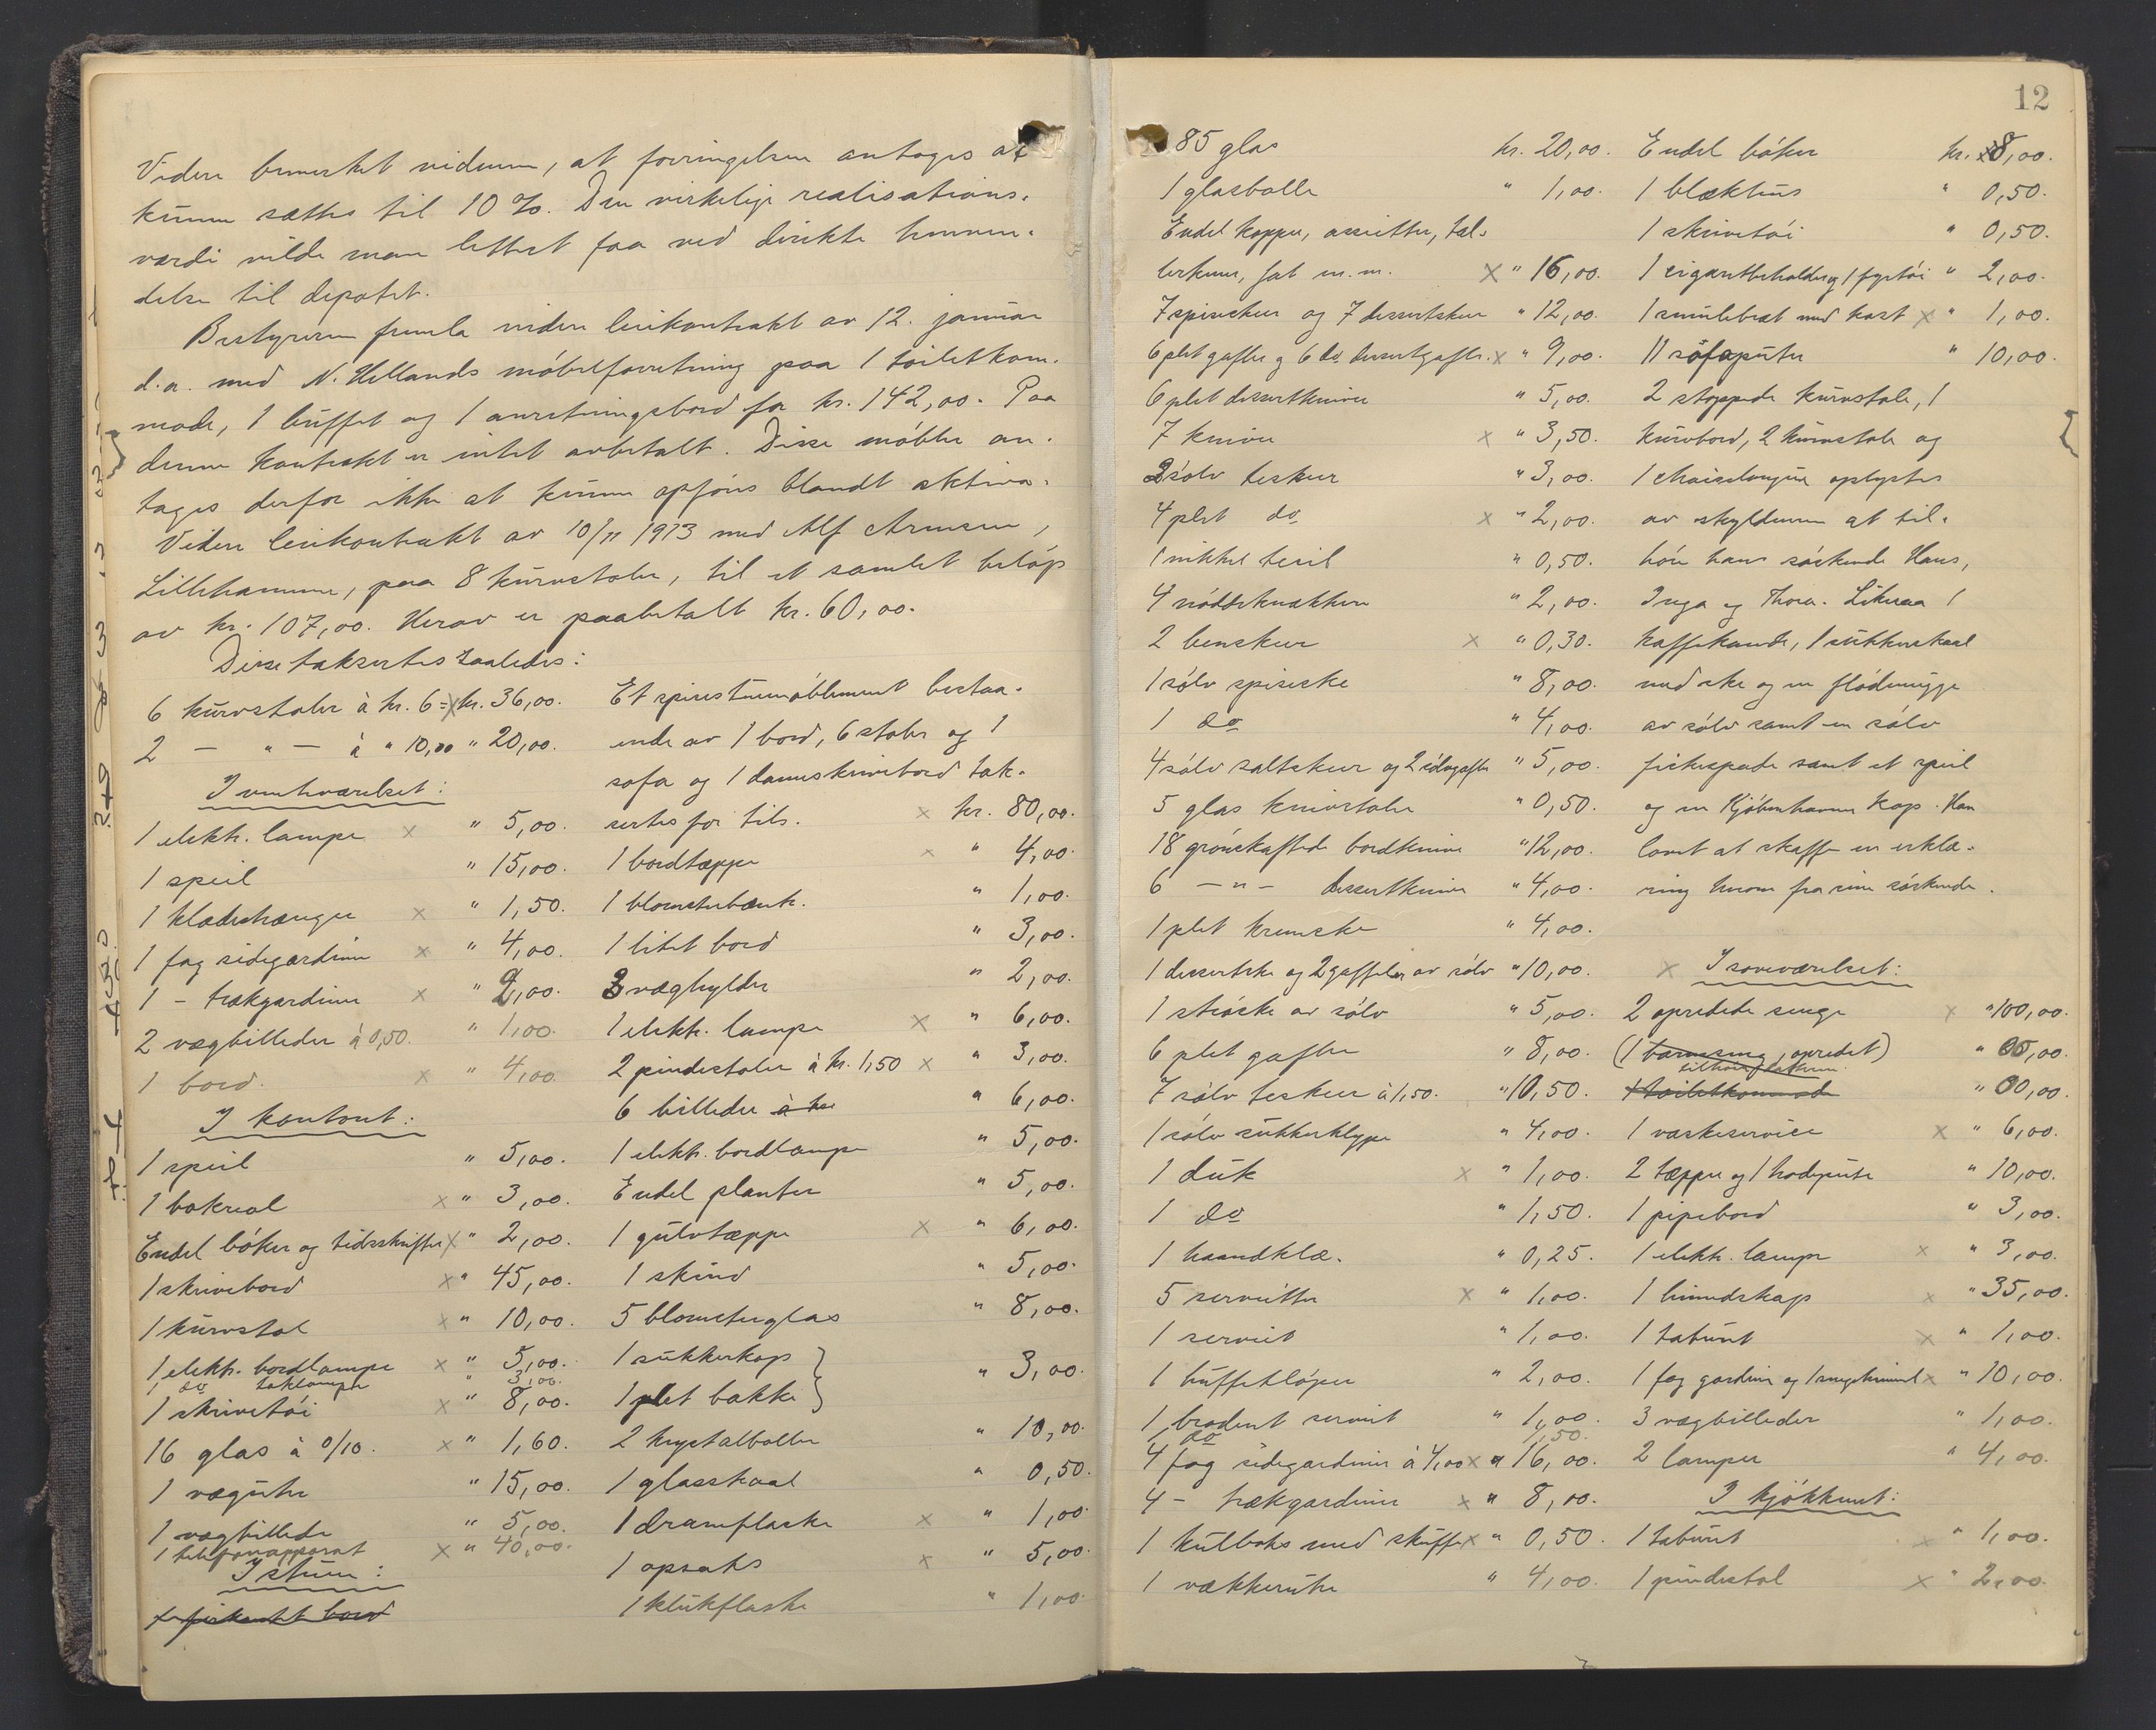 Videre bemerket vidnerne, at forringelsen antages at
kunne sættes til 10 %. Den virkelige realisations-
værdi vilde man lettest faa ved direkte henven-
delse til depotet.
Bestyreren fremla videre leiekontrakt av 12. januar
d.a. med N. Hellands møbelforretning paa 1 toiletkom-
mode, 1 buffet og 1 anretningsbord for kr. 142,00. Paa
denne kontrakt er intet avbetalt. Disse møbler an-
tages derfor ikke at kunne opføres blandt aktiva.
Videre leiekontrakt av 10/11 1913 med Alf Arnesen,
Lillehammer, paa 8 kurvstoler, til et samlet beløp
av kr. 107,00. Herav er paabetalt kr. 60,00.
Disse taksertes saaledes:
6 kurvstoler à kr. 6 = kr. 36,00.
2 — " — à " 10,00 " 20,00.
I venteværelset:
1 elektr. lampe x " 5,00.
1 speil " 15,00.
1 klædeshænger x " 1,50.
1 fag sidegardiner x " 4,00.
1 - trækgardiner x " 2,00.
2 vægbilleder à 0,50. " 1,00.
1 bord. x " 4,00
I kontoret:
1 speil " 5,00.
1 bokreol x " 3,00.
Endel bøker og tidsskrifter x " 2,00.
1 skrivebord x " 45,00.
1 kurvstol x " 10,00.
1 elektr. bordlampe x " 5,00.
1 do taklampe " 3,00.
1 skrivetøi x " 8,00.
16 glas à 0/10. x " 1,60.
1 væguhr " 15,00.
1 vægbillede " 5,00.
1 telefonapparat x " 40,00.
I stuen:
1 firkantet bord
Et spisestuemøblement bestaa-
ende av 1 bord, 6 stoler og 1
sofa og 1 dameskrivebord tak-
sertes for tils. x kr. 80,00.
1 bordtæppe x " 4,00.
1 blomsterbænk. " 1,00.
1 litet bord " 3,00.
3 væghylder " 2,00.
1 elektr. lampe x " 6,00.
2 pindestoler à kr. 1,50 x " 3,00.
6 billeder à kr " 6,00.
1 elektr. bordlampe " 5,00.
Endel planter " 5,00.
1 gulvtæppe x " 6,00.
1 skind " 5,00.
5 blomsterglas " 8,00.
1 sukkerkop
1 plet bakke " 3,00.
2 krystalboller " 10,00.
1 glasskaal " 0,50.
1 dramflaske x " 1,00
1 opsats x " 5,00
1 klukflaske " 1,00.
12
85 glas kr. 20,00.
1 glasbolle " 1,00.
Endel kopper, assietter, tal-
lerkener, fat m.m. x " 16,00.
7 spiseskeer og 7 dessertskeer " 12,00.
6 plet gafler og 6 do. dessertgafler. x " 9,00.
6 plet dessertkniver " 5,00.
7 kniver x " 3,50.
3 sølv teskeer " 3,00.
4 plet do x " 2,00.
1 nikkel tesil " 0,50.
4 nøddeknækkere " 2,00.
2 benskeer x " 0,30.
1 sølv spiseske " 8,00.
1 do " 4,00.
4 sølv saltskeer og 2 sølvgafler " 5,00.
5 glas knivstoler " 0,50.
18 grønskaftede bordkniver " 12,00.
6 — " — dessertkniver " 4,00.
1 plet kremske " 4,00.
1 dessertske og 2 gafler av sølv " 10,00.
1 strøske av sølv " 5,00.
6 plet gafler " 8,00.
7 sølv teskeer à 1,50. " 10,50.
1 sølv sukkerklype " 4,00.
1 duk x " 1,00.
1 do " 1,50.
1 haandklæ. " 0,25.
5 servietter x " 1,00.
1 serviet " 1,00.
1 buffetløper " 2,00.
1 brodert serviet " 1,00.
1 do 1,50.
4 fag sidegardiner à 4,00 x " 16,00.
4 - trækgardiner x " 8,00.
1 kulboks med skuffe x " 0,50.
1 vækkeruhr " 4,00.
Endel bøker kr. 8,00.
1 blækhus " 0,50.
1 skrivetøi " 0,50.
1 cigaretbeholder og 1 fyrtøi " 2,00.
1 smulebræt med kost x " 1,00.
11 sofaputer " 10,00.
2 stoppede kurvstole, 1
kurvbord, 2 kurvstole og
1 chaiselongue oplystes
av skyldneren at til-
høre hans søskende Hans,
Inga og Thora. Likesaa 1
kaffekande, 1 sukkerskaal
med ske og en flødemugge
av sølv samt en sølv
fiskespade samt et speil
og en Kjøbenhavner kop. Han
lovet at skaffe en erklæ-
ring herom fra sine søskende.
x I soveværelset:
2 opredede senge x " 100,00.
(1 barneseng, opredet) " 00,00.
1 toiletkommode " 00,00.
1 vaskeservice x " 6,00.
2 tæpper og 1 hodepute " 10,00.
1 pipebord " 3,00.
1 elektr. lampe x " 3,00.
1 linnedskap x " 35,00.
1 taburet x " 1,00.
1 fag gardiner og 1 sengehimmel x " 10,00.
3 vægbilleder " 1,00.
2 lamper " 4,00.
I kjøkkenet:
1 taburet x " 1,00.
1 pindestol x " 2,00.